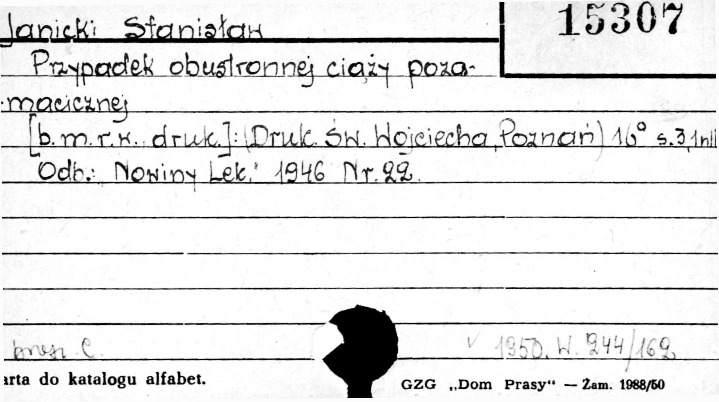 Janicki Stanisław
15307
Przypadek obustronnej ciąży poza-
macicznej
[b.m.r.w., druk.]: (Druk. Św. Wojciecha, Poznań) 16° s.3, 1 nli
Odb.: "Nowiny Lek." 1946 Nr. 22.
C.
1950. W. 244/162
arta do katalogu alfabet.
GZG „Dom Prasy“ — Zam. 1988/50